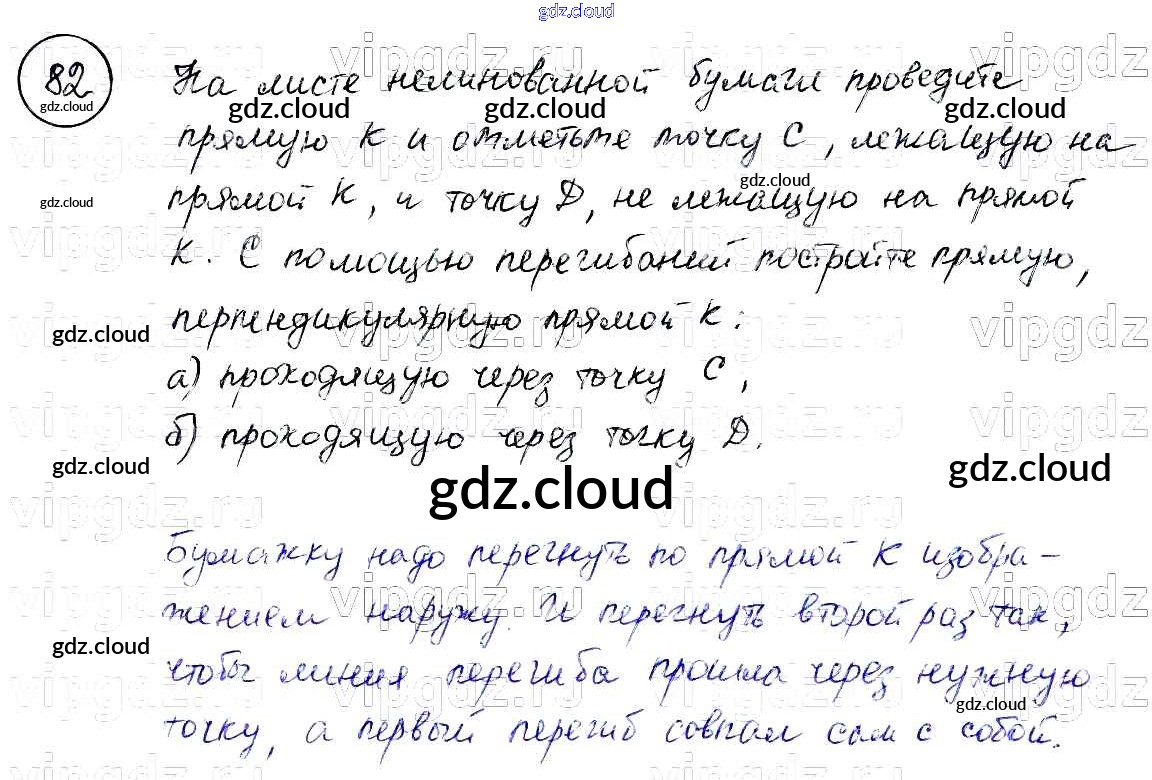 gdz.cloud
82
На листе нелинованной бумаги проведите
прямую К и отметьте точку С, лежащую на
прямой К, и точку D, не лежащую на прямой
К. С помощью перегибаний постройте прямую,
перпендикулярную прямой К:
а) проходящую через точку С,
б) проходящую через точку D.
gdz.cloud
Бумажку надо перегнуть по прямой К изобра-
жением наружу. И перегнуть второй раз так,
чтобы линия перегиба прошла через нужную
точку, а первый перегиб совпал сам с собой.